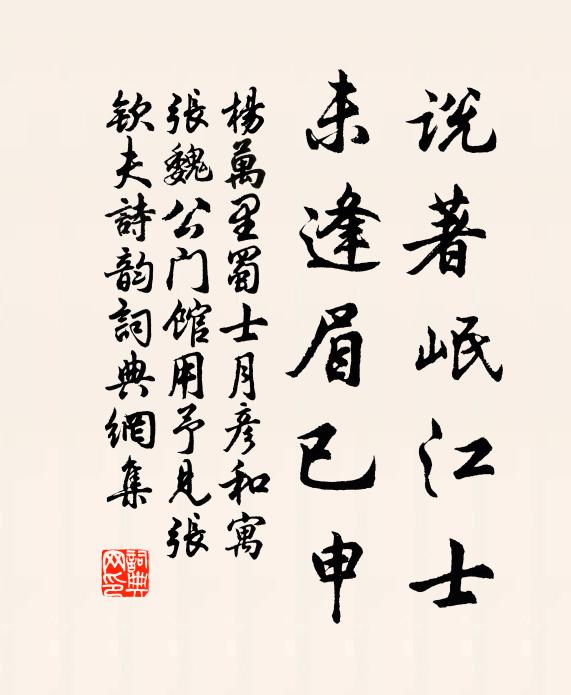 说著岷江士
未逢眉已申
杨万里蜀士月彦和寓
张魏公门馆用予见张
钦夫诗韵词典网集
词典网印